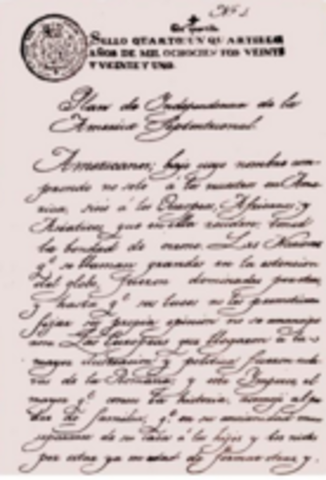 Nº 1
SELLO QUARTO: UN QUARTILLO
AÑOS DE MIL OCHOCIENTOS VEINTE
Y VEINTE Y UNO.
Plan de Independencia de la
America Septentrional.
Americanos, bajo cuyo nombre com
prendo no solo á los nacidos en Ame
rica, sino á los Europeos, Africanos, y
Asiaticos, que en ella residen: tened
la bondad de oirme. Las Naciones
qe. se llaman grandes en la extension
del globo, fueron dominadas por otras,
y hasta qe. sus luces no les permitieron
fijar su propia opinion no se emancipa
ron. Las Europeas que llegaron á la
mayor ilustracion y politica, fueron escla
vas de la Romana; y este Imperio, el
mayor qe. conoce la historia, asemejó al pa
dre de familias, qe. en su ancianidad mira
separarse de su casa á los hijos y los nietos
por estar ya en edad de formar otras, y